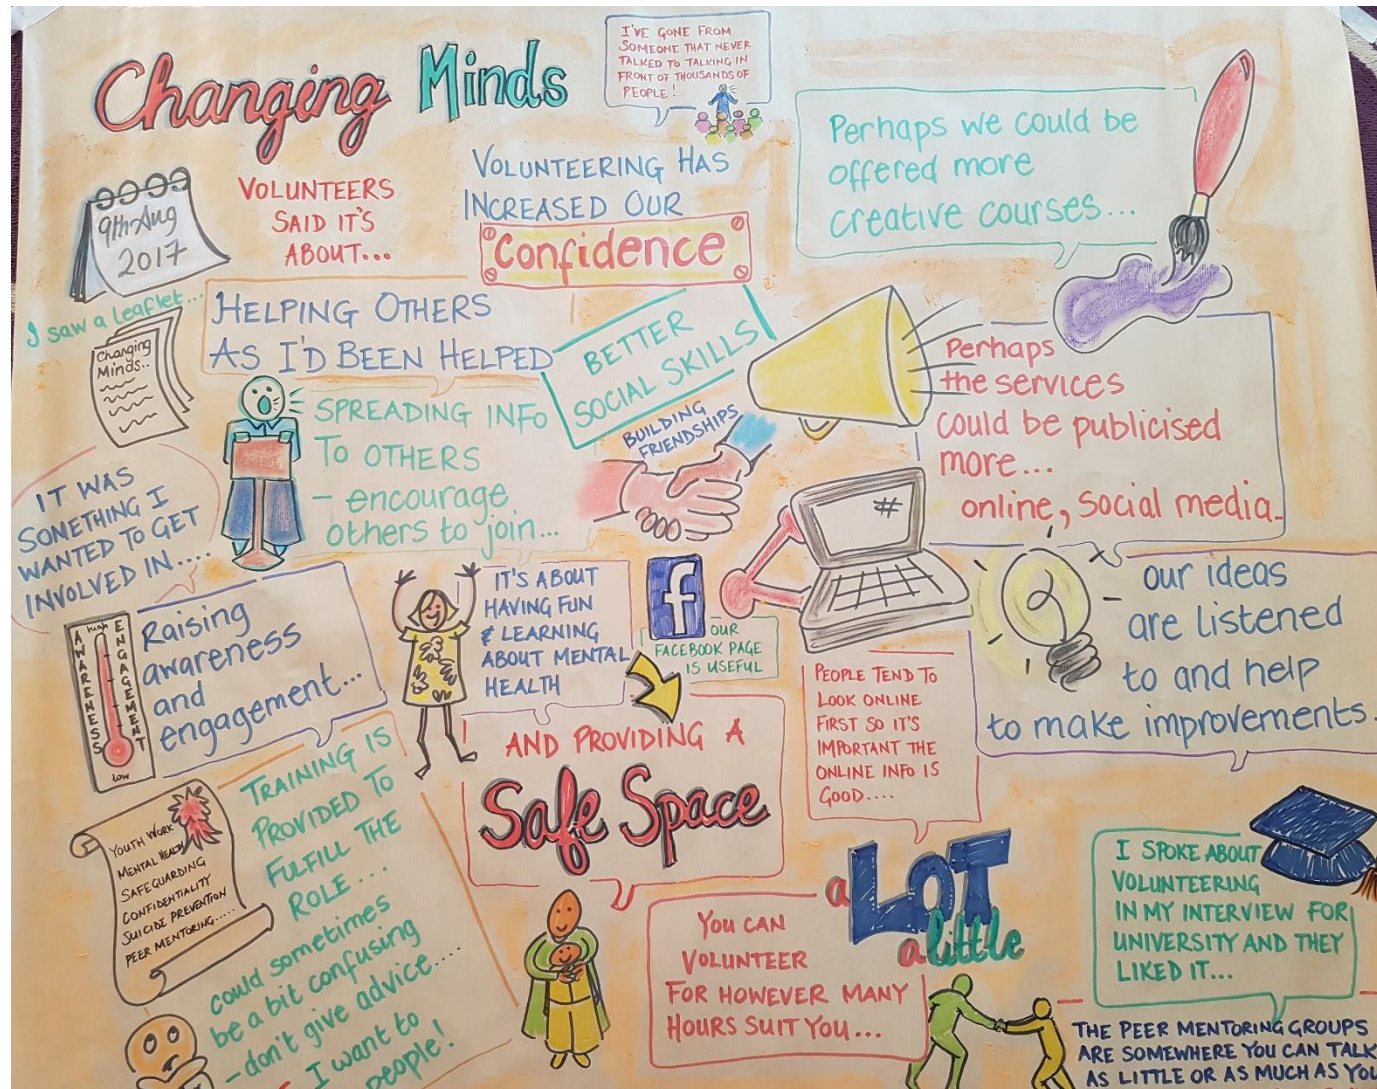 Changing Minds
I'VE GONE FROM
SOMEONE THAT NEVER
TALKED TO TALKING IN
FRONT OF THOUSANDS OF
PEOPLE!
9th Aug
2017
VOLUNTEERS
SAID IT'S
ABOUT...
VOLUNTEERING HAS
INCREASED OUR
Confidence
Perhaps we could be
offered more
creative courses...
I saw a leaflet...
Changing
Minds..
HELPING OTHERS
AS I'D BEEN HELPED
BETTER
SOCIAL SKILLS
SPREADING INFO
TO OTHERS
- encourage
others to join...
BUILDING
FRIENDSHIPS
Perhaps
the services
could be publicised
more...
online, social media.
#
IT WAS
SOMETHING I
WANTED TO GET
INVOLVED IN....
high
AWARENESS
ENGAGEMENT
low
Raising
awareness
and
engagement...
IT'S ABOUT
HAVING FUN
& LEARNING
ABOUT MENTAL
HEALTH
f
OUR
FACEBOOK PAGE
IS USEFUL
our ideas
are listened
to and help
to make improvements.
PEOPLE TEND TO
LOOK ONLINE
FIRST SO IT'S
IMPORTANT THE
ONLINE INFO IS
GOOD....
AND PROVIDING A
Safe Space
YOUTH WORK
MENTAL HEALTH
SAFEGUARDING
CONFIDENTIALITY
SUICIDE PREVENTION
PEER MENTORING.....
TRAINING IS
PROVIDED TO
FULFILL THE
ROLE...
could sometimes
be a bit confusing
- don't give advice....
I want to
people!
YOU CAN
VOLUNTEER
FOR HOWEVER MANY
HOURS SUIT YOU...
a LOT
a little
I SPOKE ABOUT
VOLUNTEERING
IN MY INTERVIEW FOR
UNIVERSITY AND THEY
LIKED IT...
THE PEER MENTORING GROUPS
ARE SOMEWHERE YOU CAN TALK
AS LITTLE OR AS MUCH AS YOU